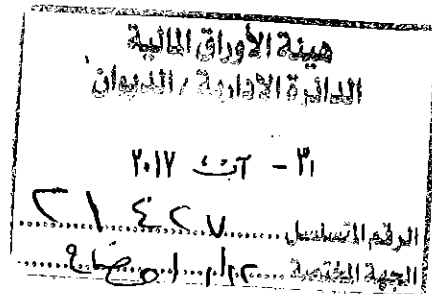 هيئة الأوراق المالية
الدائرة الإدارية / الديوان
٣١ - آب ٢٠١٧
الرقم المتسلسل ٢١٤٢٧
الجهة المختصة